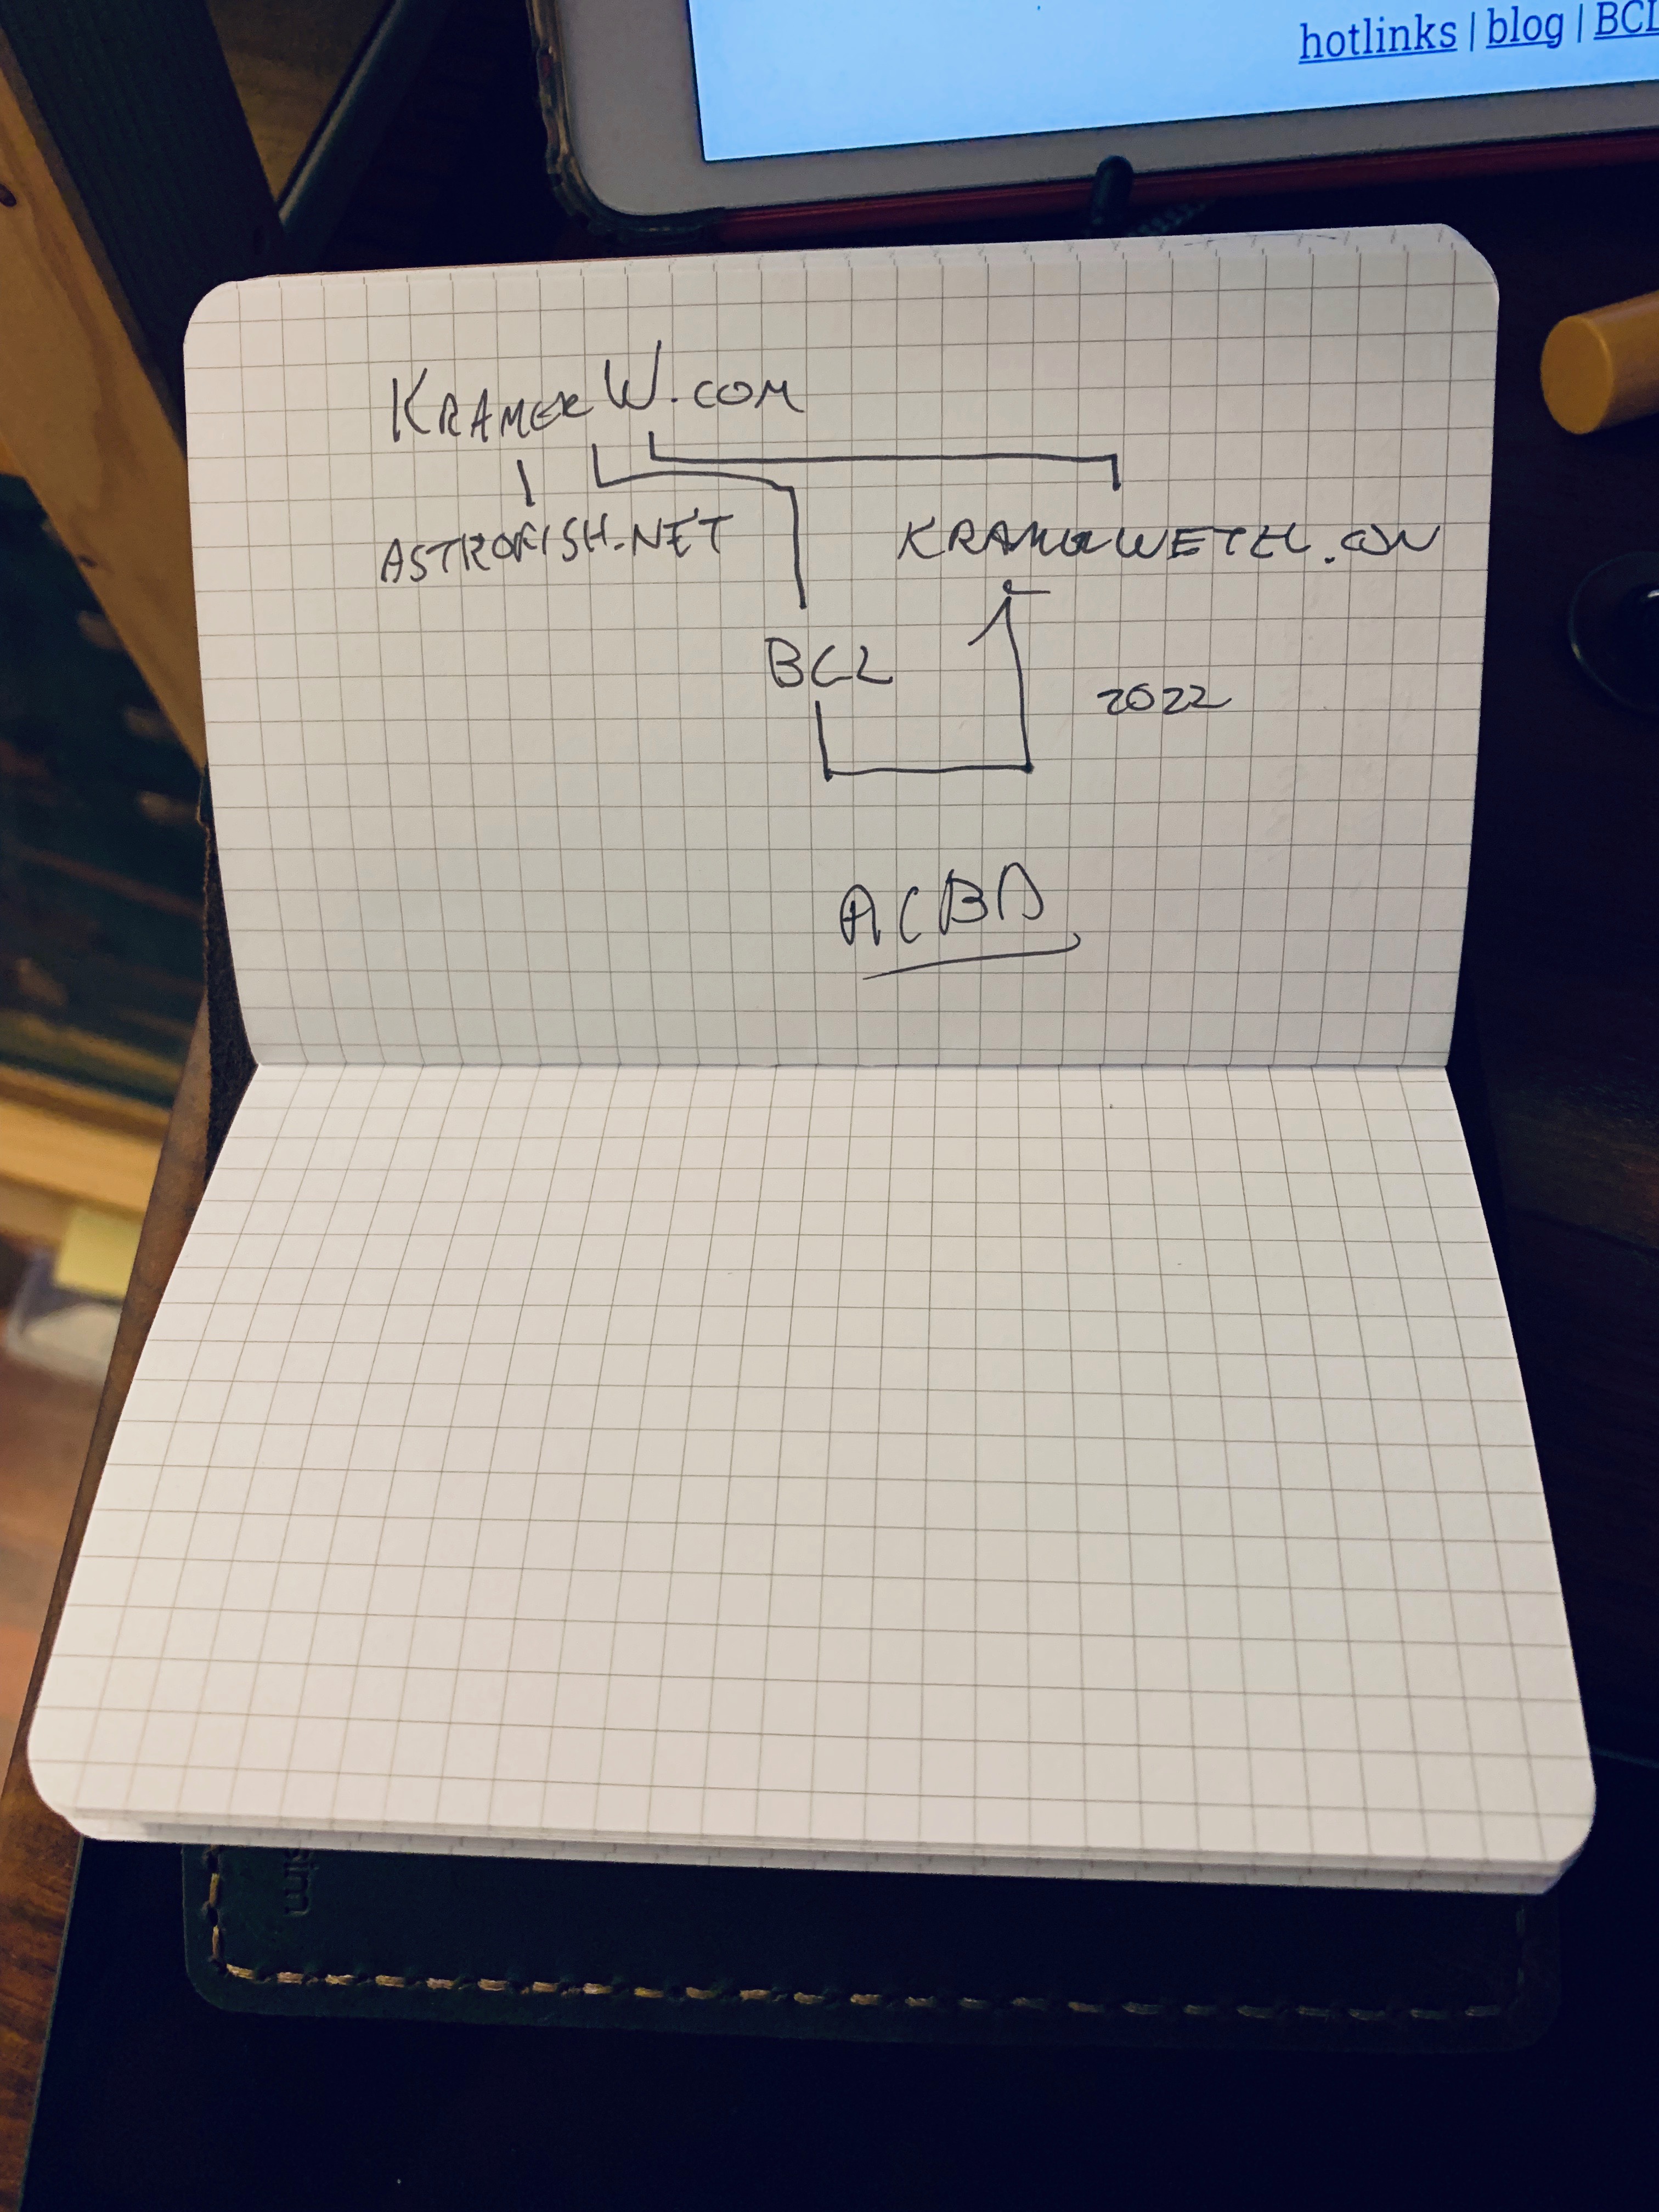 hotlinks | blog | BCL
KRAMERW.COM
ASTROFISH.NET
KRAMERWETZL.COM
BCL
2022
ACBA